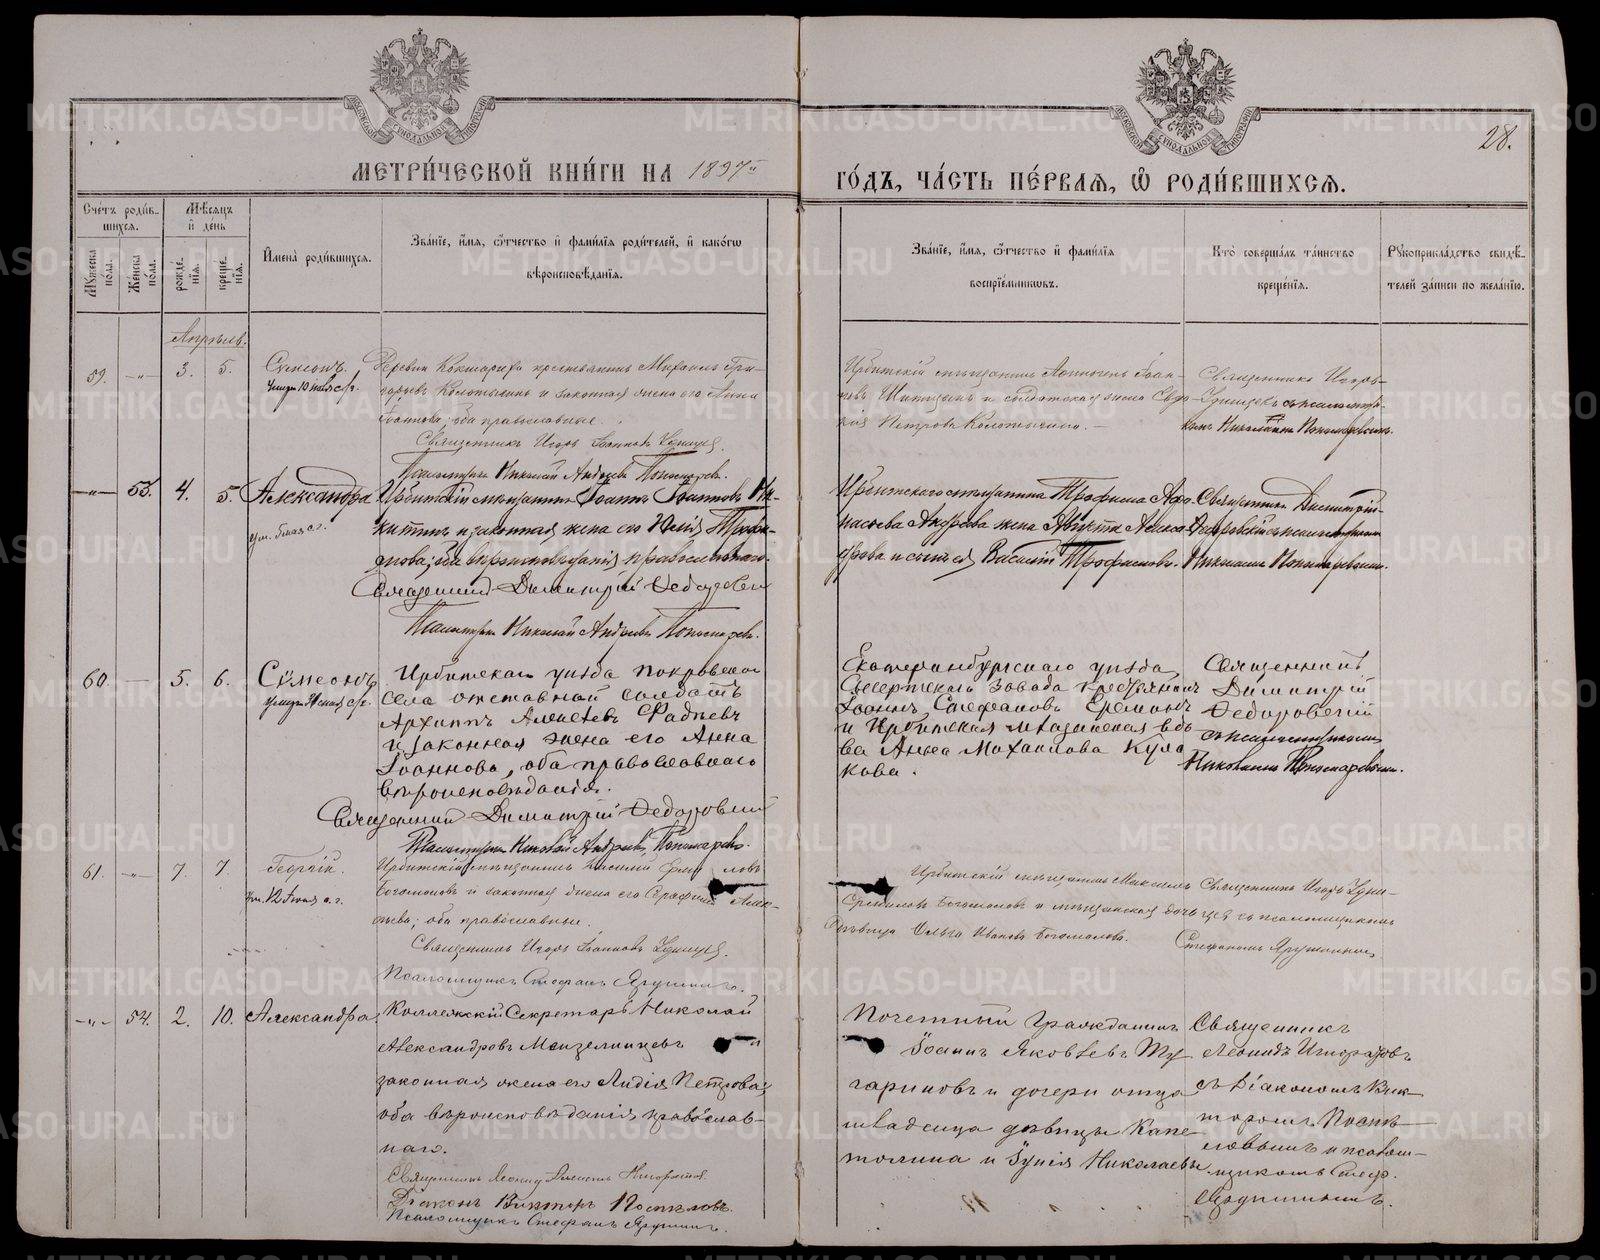 МЕТРИ́ЧЕСКОЙ КНИ́ГИ НА 1897й
ГО́ДЪ, ЧА́СТЬ ПЕ́РВАЯ, Ѽ РОДИ́ВШИХСЯ.
28.
Сче́тъ роди́в-
шихся.
Мѣ́сяцъ
и҆ де́нь
Мꙋжеска по́ла.
Же́нска по́ла.
рожде́нїя.
креще́нїя.
И҆мена̀ роди́вшихся.
Зва́нїе, и҆́мя, ѻ҆́тчество и҆ фами́лїя роди́телей, и҆ како́гѡ
вѣроисповѣ́данїя.
Зва́нїе, и҆́мя, ѻ҆́тчество и҆ фами́лїя
воспрїе́мникѡвъ.
Кто̀ соверша́лъ та́инство
креще́нїя.
Рꙋкоприкла́дство свидѣ́-
телей за́писи по жела́нїю.
Апрѣль.
59. —"— 3. 5. Сѵмеонъ.
Деревни Кокшарихи крестьянинъ Михаилъ Гри-
горьевъ Колотыгинъ и законная жена его Анна
Іоаннова; оба православные.
Священникъ Игорь Іоанновъ
Псаломщикъ Николай Андреевъ Пономаревъ.
Ирбитскій мѣщанинъ Іоан-
новъ и солдатская жена
Петрова Колотыгина. —
Священникъ Игорь
съ псаломщи-
комъ Николаемъ Пономаревымъ.
—"— 53. 4. 5. Александра
Ирбитскій мѣщанинъ Іоаннъ Іоанновъ Ни-
китинъ и законная жена его Юлія Трофи-
мова; оба вѣроисповѣданія православнаго.
Священникъ Димитрій Ѳедоровскій
Псаломщикъ Николай Андреевъ Пономаревъ.
Ирбитскаго мѣщанина Трофима Аѳа-
насьева Андреева жена Алекса-
ндрова и сынъ ея Василій Трофимовъ.
Священникъ Димитрій
Ѳедоровскій съ псаломщикомъ
Николаемъ Пономаревымъ.
60. — 5. 6. Сѵмеонъ
Ирбитскаго уѣзда Покровскаго
села отставной солдатъ
Архипъ Алексѣевъ Фадѣевъ
и законная жена его Анна
Іоаннова, оба православнаго
вѣроисповѣданія.
Священникъ Димитрій Ѳедоровскій
Псаломщикъ Николай Андреевъ Пономаревъ.
Екатеринбургскаго уѣзда
Сысертскаго завода крестьянинъ
Іоаннъ Стефановъ Ереминъ
и Ирбитская мѣщанская вдо
ва Анна Михаилова Кула
кова.
Священникъ
Димитрій
Ѳедоровскій
съ псаломщикомъ
Николаемъ Пономаревымъ.
61. —"— 7. 7. Георгій.
Ирбитскій мѣщанинъ Василій
Богомоловъ и законная жена его Серафима Алек-
сѣева; оба православные.
Священникъ Игорь Іоанновъ
Псаломщикъ Стефанъ Ярушинъ.
Ирбитскій мѣщанинъ Максимъ
Богомоловъ и мѣщанская дочь
дѣвица Ольга Иванова Богомолова.
Священникъ Игорь
съ псаломщикомъ
Стефаномъ Ярушинымъ
—"— 54. 2. 10. Александра
Коллежскій Секретарь Николай
Александровъ Мензелинцевъ и
законная жена его Лидія Петрова;
оба вѣроисповѣданія православ-
наго.
Священникъ Леонидъ Игноратовъ.
Діаконъ Викторъ Поспѣловъ.
Псаломщикъ Стефанъ Ярушинъ.
Почетный Гражданинъ
Іоаннъ Яковлевъ
гариновъ и дочери отца
дѣвицы Капи
толина и Іулія Николаевы
Священникъ
Леонидъ Игноратовъ
съ Діакономъ Вик-
торомъ Поспѣ-
ловымъ и псалом-
щикомъ Стеф.
Ярушинымъ.
METRIKI.GASO-URAL.RU